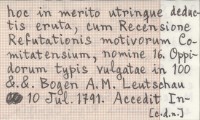 hoc in merito utringue deduc-
tis eruta, cum Recensione
Refutationis motivorum Co-
mitatensium, nomine 16. Oppi-
dorum typis vulgatae in 100
&.&. Bogen A.M. Leutschau
10 Jul. 1771. Accedit In-
[c.d.n.]